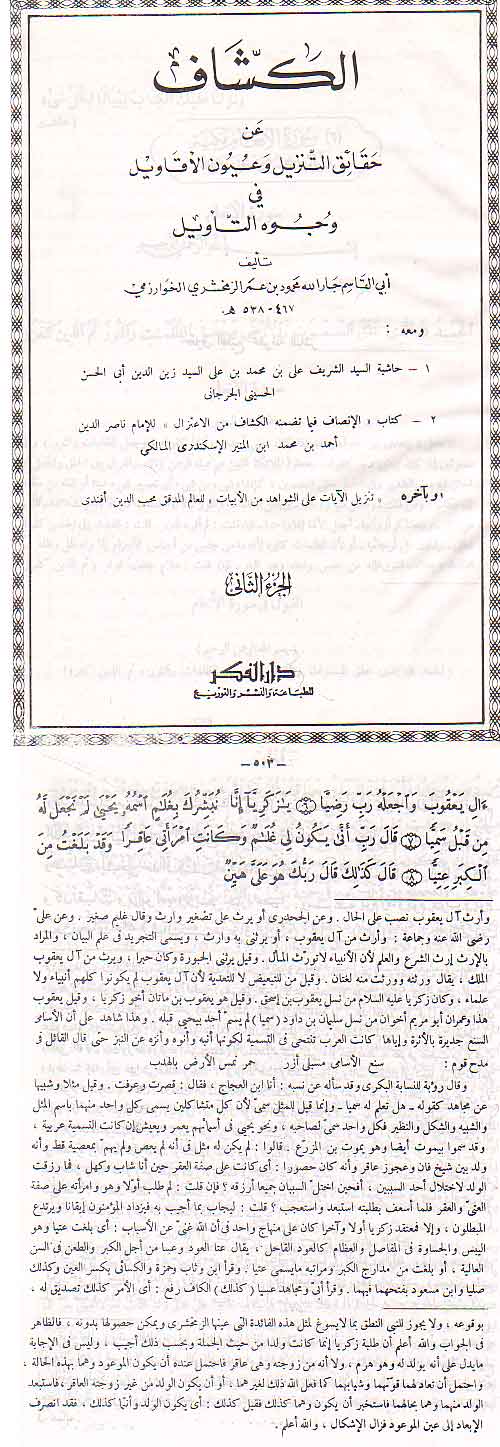 الكشاف
عن
حقائق التنزيل وعيون الأقاويل
في
وجوه التأويل
تأليف
أبي القاسم جار الله محمود بن عمر الزمخشري الخوارزمي
٤٦٧ - ٥٣٨ هـ
ومعه :
١ - حاشية السيد الشريف على بن محمد بن على السيد زين الدين أبى الحسن
الحسينى الجرجانى
٢ - كتاب « الإنصاف فيما تضمنه الكشاف من الاعتزال » للإمام ناصر الدين
أحمد بن محمد ابن المنير الإسكندرى المالكى
وبآخره « تنزيل الآيات على الشواهد من الأبيات » للعالم المدقق محب الدين أفندى
الجزء الثانى
دار الفكر
للطباعة والنشر والتوزيع
— ٥٠٣ —
ءَالِ يَعْقُوبَ وَاجْعَلْهُ رَبِّ رَضِيًّا ﴿٦﴾ يَٰزَكَرِيَّآ إِنَّا نُبَشِّرُكَ بِغُلَٰمٍ اسْمُهُ يَحْيَىٰ لَمْ نَجْعَل لَّهُ
مِن قَبْلُ سَمِيًّا ﴿٧﴾ قَالَ رَبِّ أَنَّىٰ يَكُونُ لِي غُلَٰمٌ وَكَانَتِ امْرَأَتِي عَاقِرًا وَقَدْ بَلَغْتُ مِنَ
الْكِبَرِ عِتِيًّا ﴿٨﴾ قَالَ كَذَٰلِكَ قَالَ رَبُّكَ هُوَ عَلَيَّ هَيِّنٌ
وأرث آل يعقوب نصب على الحال . وعن الجحدرى أو يرث على تصغير وارث وقال غليم صغير . وعن علىّ
رضى الله عنه وجماعة : وأرث من آل يعقوب ، أو يرثنى به وارث ، ويسمى التجريد فى علم البيان ، والمراد
بالإرث إرث الشرع والعلم لأن الأنبياء لاتورّث المال . وقيل يرثنى الحبورة وكان حبرا ، ويرث من آل يعقوب
الملك ، يقال ورثته وورثت منه لغتان . وقيل من للتبعيض لا للتعدية لأن آل يعقوب لم يكونوا كلهم أنبياء ولا
علماء ، وكان زكريا عليه السلام من نسل يعقوب بن إسحق . وقيل هو يعقوب بن ماتان أخو زكريا ، وقيل يعقوب
هذا وعمران أبو مريم أخوان من نسل سليمان بن داود (سميا) لم يسم أحد بيحيى قبله . وهذا شاهد على أن الأسامى
السنع جديرة بالأثرة وإياها كانت العرب تنتحى فى التسمية لكونها أنبه وأنوه وأنزه عن النبز حتى قال القائل فى
مدح قوم : سنع الأسامى مسبلى أزر حمر تمس الأرض بالهدب
وقال رؤبة للنسابة البكرى وقد سأله عن نسبه : أنا ابن العجاج ، فقال : قصرت وعرفت . وقيل مثلا وشبيها
عن مجاهد كقوله ـ هل تعلم له سميا ـ وإنما قيل للمثل سمىّ لأن كل متشاكلين يسمى كل واحد منهما باسم المثل
والشبيه والشكل والنظير فكل واحد سمىّ لصاحبه ، ونحو يحيى فى أسمائهم يعمر ويعيش إن كانت التسمية عربية ،
وقد سموا بيموت أيضا وهو يموت بن المزرّع . قالوا : لم يكن له مثل فى أنه لم يعص ولم يهمّ بمعصية قط وأنه
ولد بين شيخ فان وعجوز عاقر وأنه كان حصورا : أى كانت على صفة العقر حين أنا شاب وكهل ، فما رزقت
الولد لاختلال أحد السببين ، أفحين اختلّ السببان جميعا أرزقه ؟ فإن قلت : لم طلب أوّلا وهو وامرأته على صفة
العتىّ والعقر فلما أسعف بطلبته استبعد واستعجب ؟ قلت : ليجاب بما أجيب به فيزداد المؤمنون إيقانا ويرتدع
المبطلون ، وإلا فمعتقد زكريا أولا وآخرا كان على منهاج واحد فى أن الله غنىّ عن الأسباب : أى بلغت عتيا وهو
اليبس والجساوة فى المفاصل والعظام كالعود القاحل ، يقال عتا العود وعسا من أجل الكبر والطعن فى السن
العالية ، أو بلغت من مدارج الكبر ومراتبه مايسمى عتيا . وقرأ ابن وثاب وحمزة والكسائى بكسر العين وكذلك
صليا وابن مسعود بفتحهما فيهما . وقرأ أبىّ ومجاهد عسيا (كذلك) الكاف رفع : أى الأمر كذلك تصديق له ،
بوقوعه ، ولا يجوز للنبى النطق بما لايسوغ لمثل هذه الفائدة التى عينها الزمخشرى ويمكن حصولها بدونه ، فالظاهر
فى الجواب والله أعلم أن طلبة زكريا إنما كانت ولدا من حيث الجملة وبحسب ذلك أجيب ، وليس فى الإجابة
مايدل على أنه يولد له وهو هرم ، ولا أنه من زوجته وهى عاقر فاحتمل عنده أن يكون الموعود وهما بهذه الحالة ،
واحتمل أن تعاد لهما قوّتهما وشبابهما كما فعل الله ذلك لغيرهما ، أو أن يكون الولد من غير زوجته العاقر ، فاستبعد
الولد منهما وهما بحالهما فاستخبر أن يكون وهما كذلك فقيل كذلك : أى يكون الولد وأنتما كذلك ، فقد انصرف
الإبعاد إلى عين الموعود فزال الإشكال ، والله أعلم .